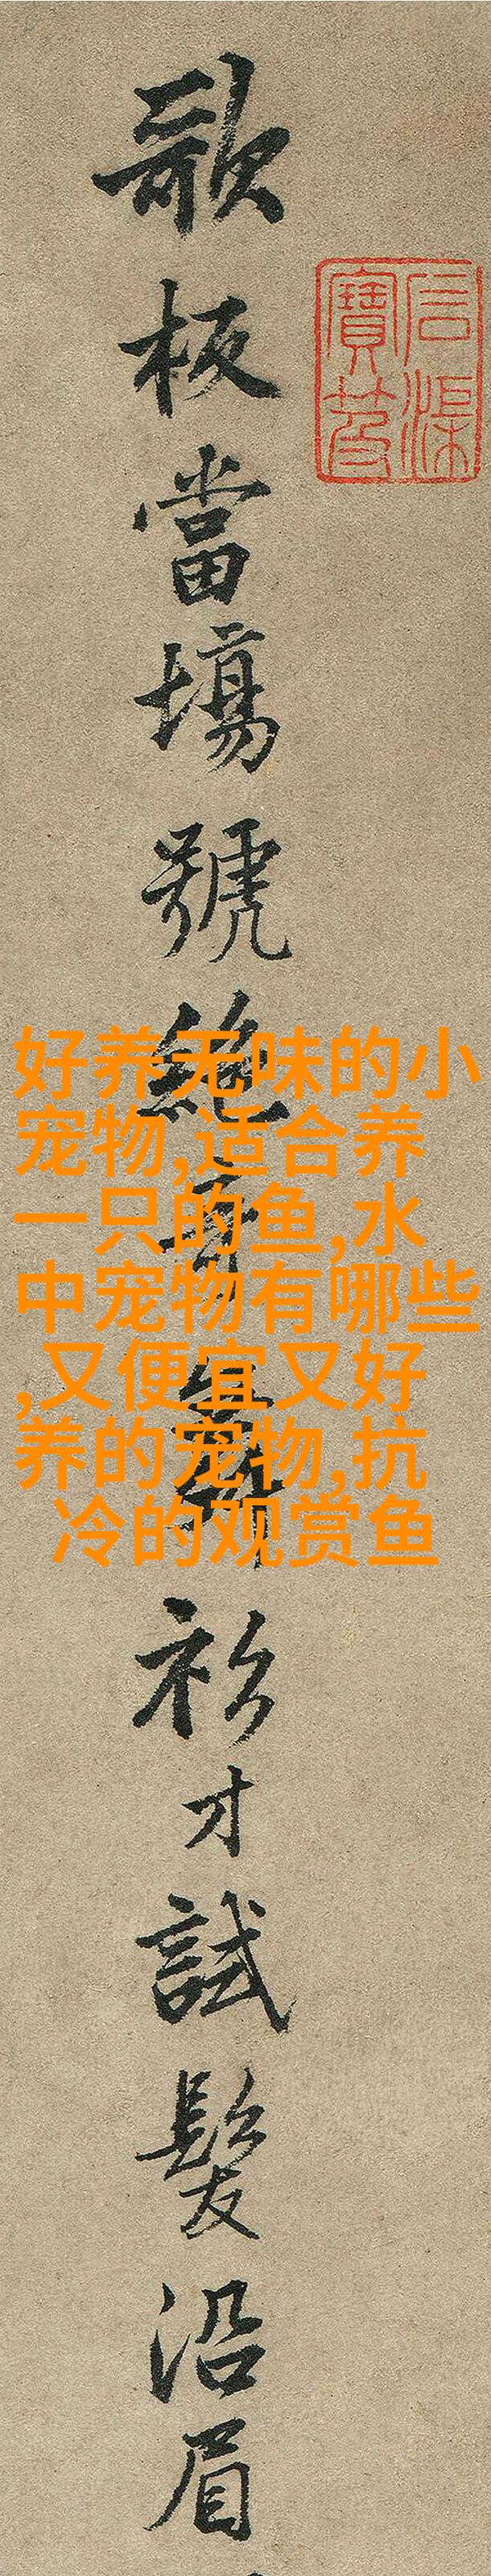 歌板當場號絕奇舞衫才試髮沿眉
好养无味的小
宠物,适合养
一只的鱼,水
中宠物有哪些
,又便宜又好
养的宠物,抗
冷的观赏鱼